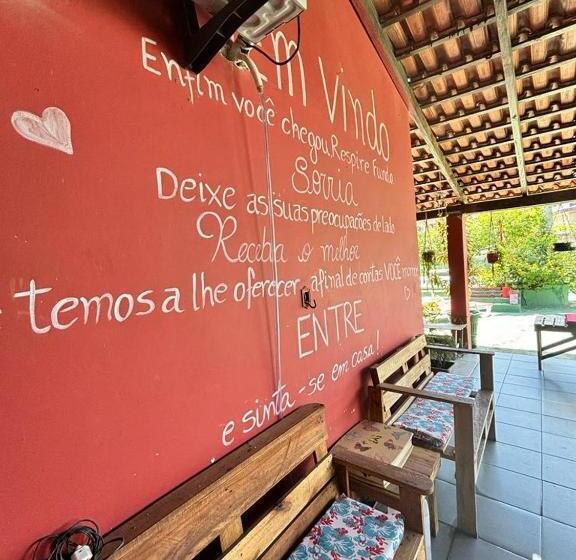 Bem Vindo
Enfim você chegou, Respire Fundo
Sorria
Deixe as suas preocupações de lado
Receba o melhor
temos a lhe oferecer, afinal de contas VOCÊ merece
ENTRE
e sinta-se em casa!